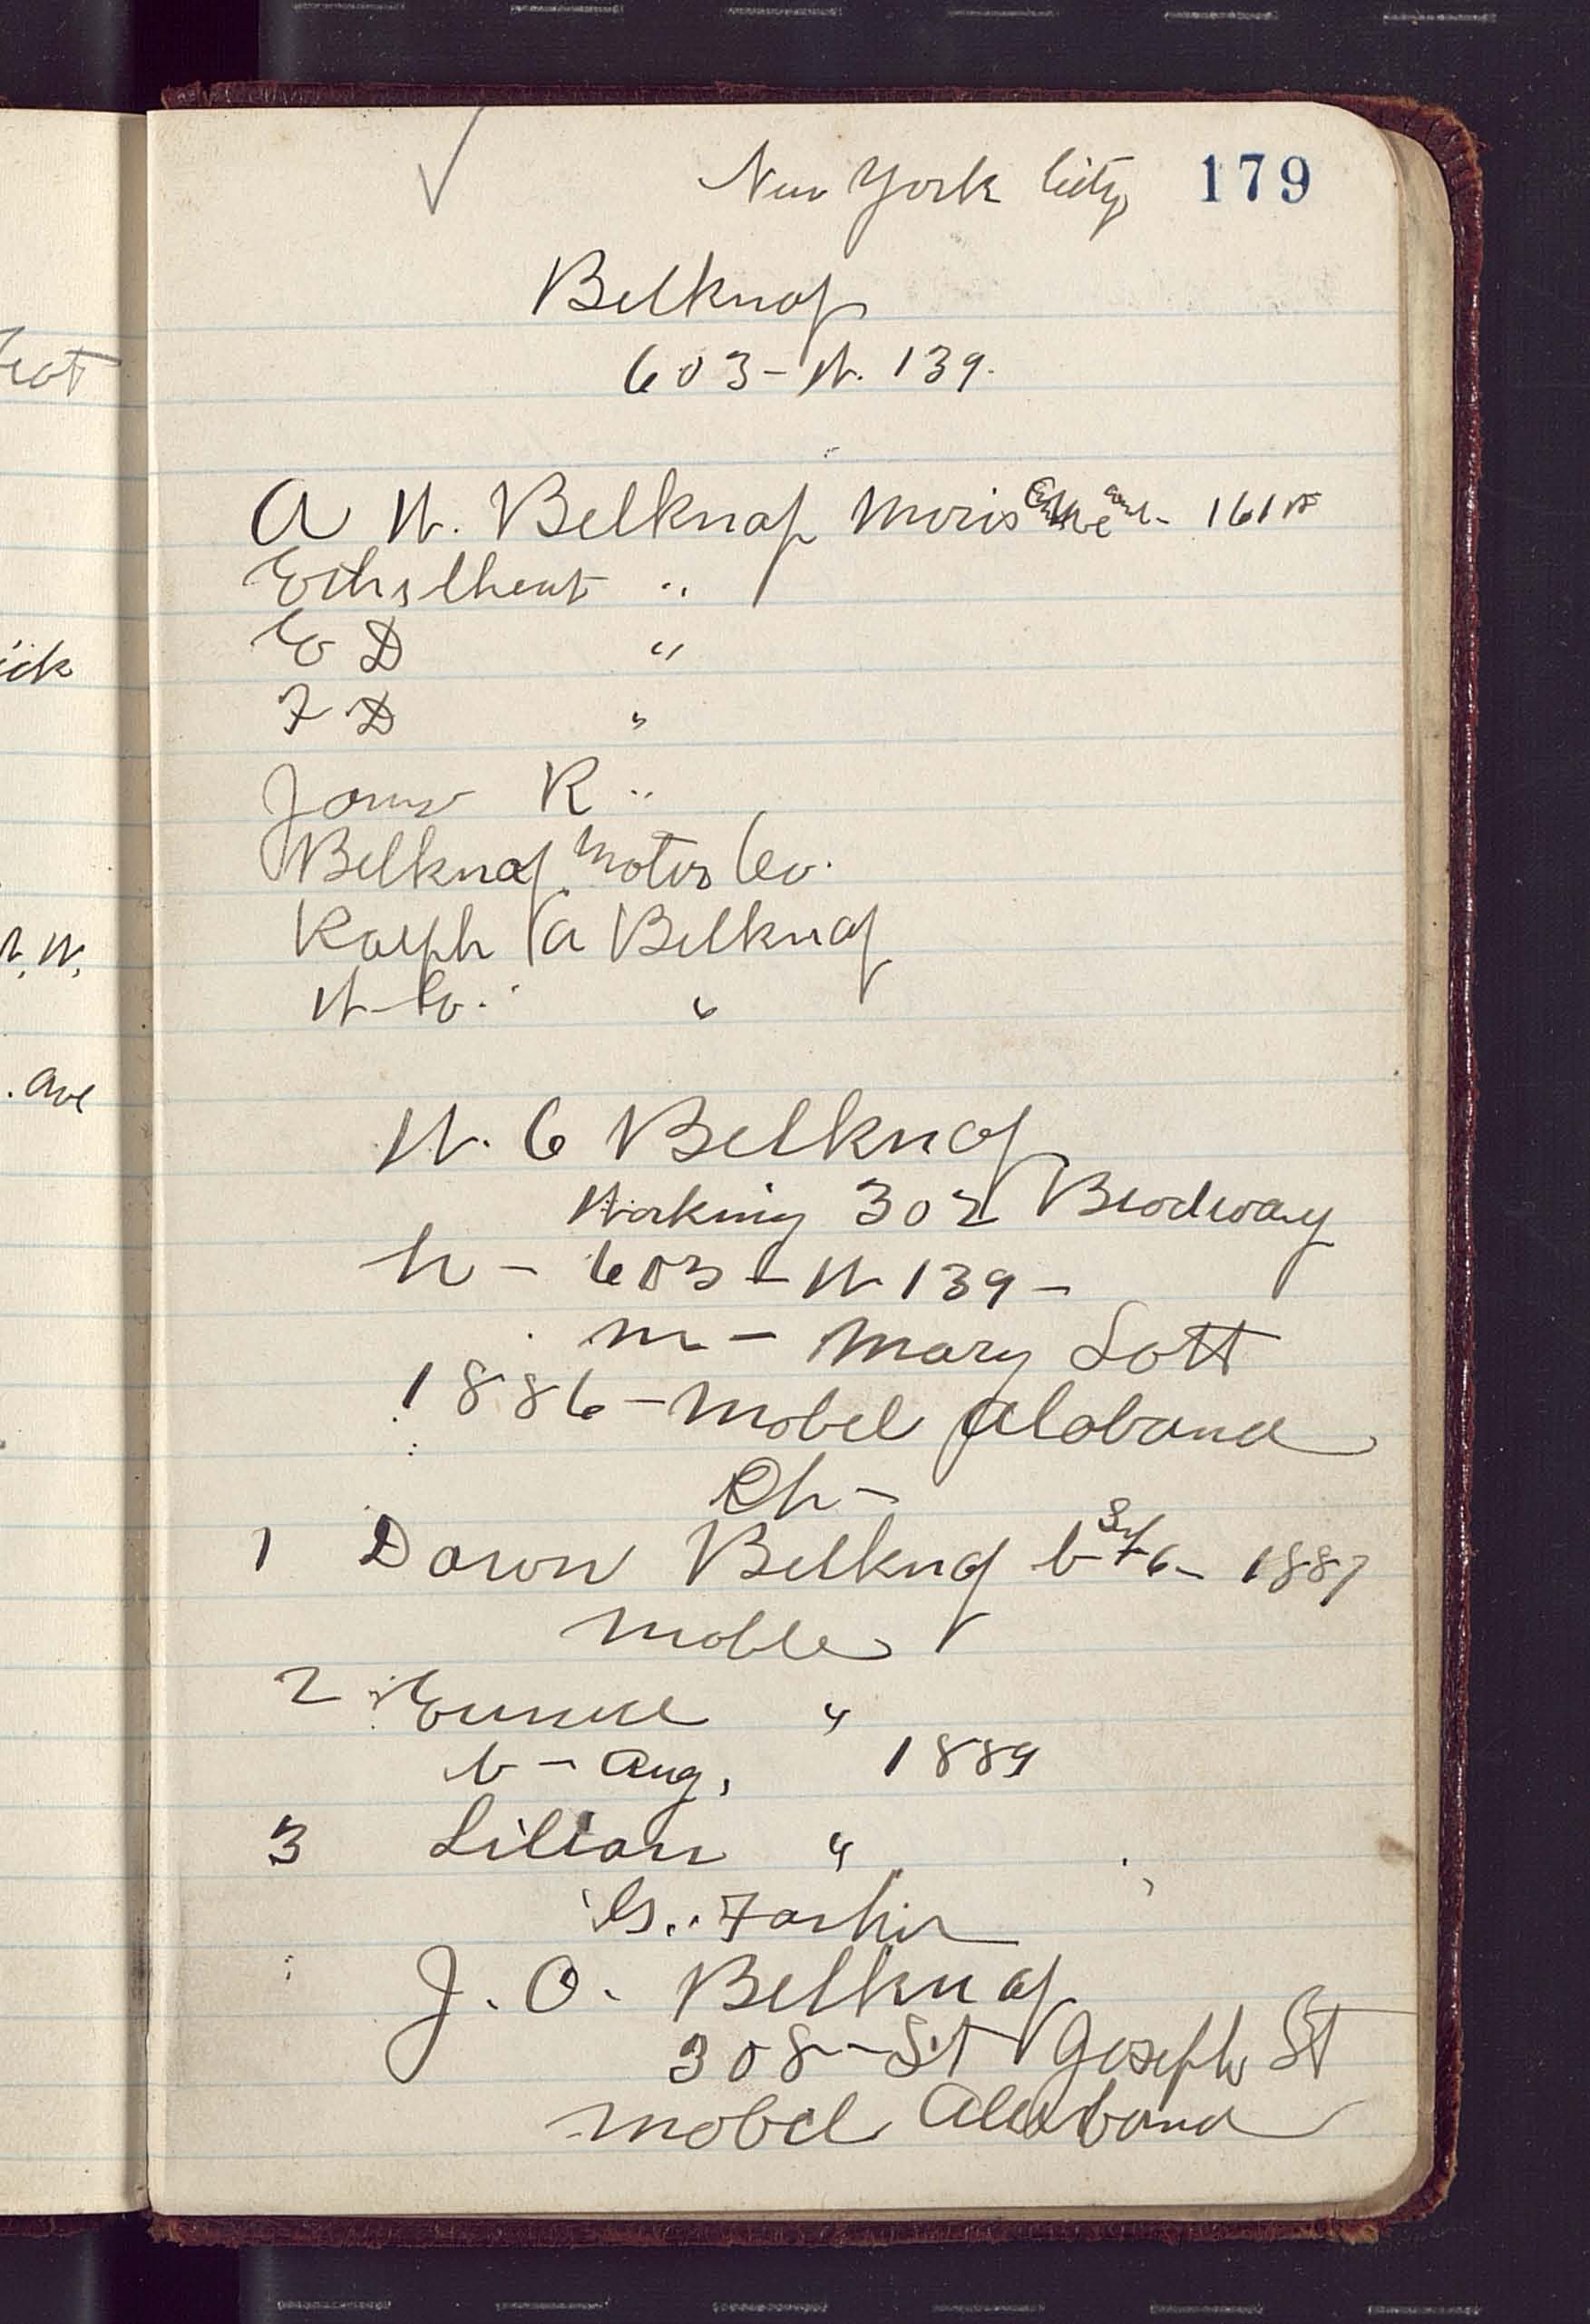 New York City 179
Belknap
603 - W. 139.
A W. Belknap Moris Ave and - 161 st
Ethelbert "
E D "
F D "
James R "
Belknap Motor Co.
Ralph A Belknap
W. C. "
W. C Belknap
Working 302 Brodway
h - 603 - W 139 -
m - Mary Lott
1886 - Mobel Alabama
Ch -
1 Dawn Belknap b - 6 - 1887
Moble
2 Eunice "
b - Aug, 1889
3 Lilian "
Gs.. Father
J. O. Belknap
308 - St Joseph St
Mobel Alabama
eat
ick
W.
. ave